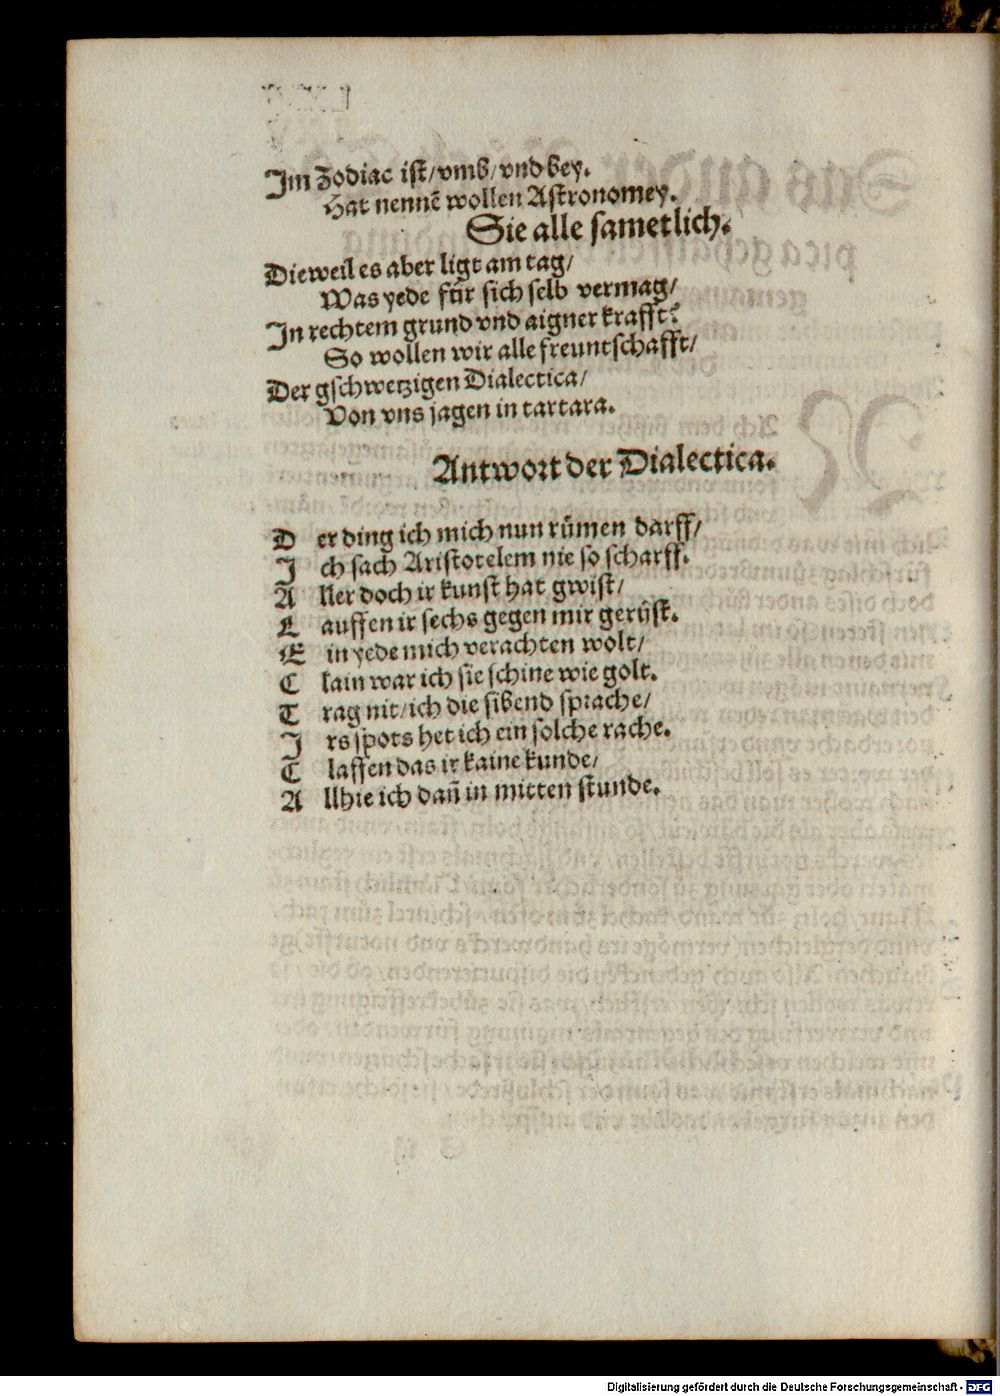 Im Zodiac ist/vmb/vnd bey.
Hat nennẽ wollen Astronomey.
Sie alle sametlich.
Dieweil es aber ligt am tag/
Was yede für sich selb vermag/
In rechtem grund vnd aigner krafft:
So wollen wir alle freuntschafft/
Der gschwetzigen Dialectica/
Von vns jagen in tartara.
Antwort der Dialectica.
D er ding ich mich nun rümen darff/
I ch sach Aristotelem nie so scharff.
A ller doch ir kunst hat gwist/
L auffen ir sechs gegen mir gerüst.
E in yede mich verachten wolt/
C kain war ich sie schine wie golt.
T rag nit/ich die sibend sprache/
I rs spots het ich ein solche rache.
C lassen das ir kaine kunde/
A llhie ich dañ in mitten stunde.
Digitalisierung gefördert durch die Deutsche Forschungsgemeinschaft - DFG